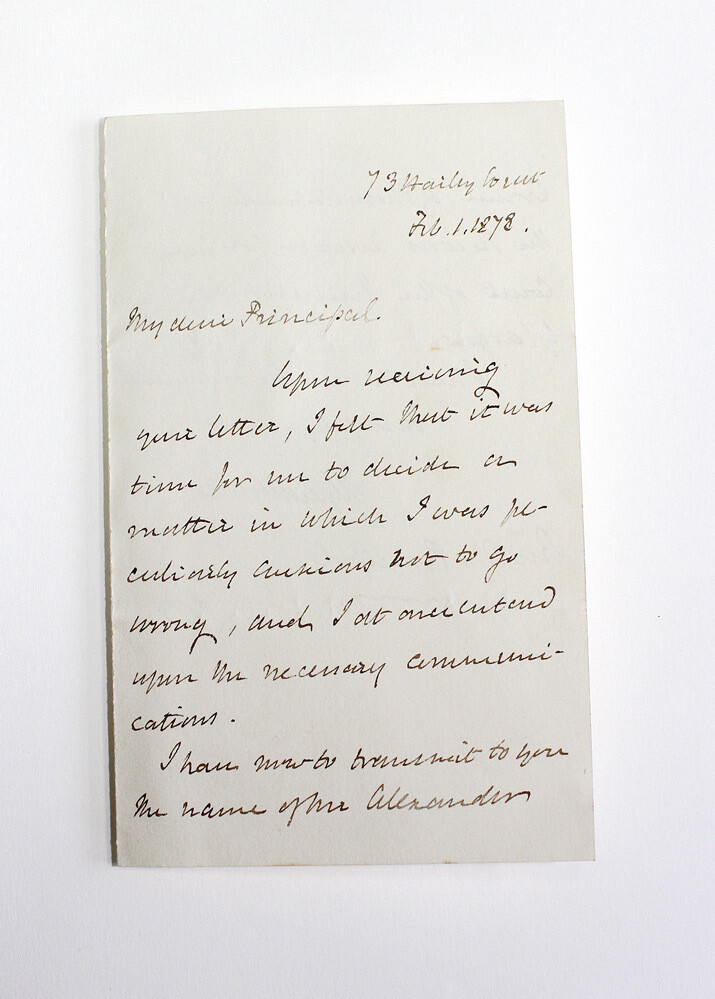 73 Harley Street
Feb. 1. 1878.
My dear Principal.
Upon receiving
your letter, I felt that it was
time for me to decide a
matter in which I was pe-
culiarly anxious not to go
wrong, and I at once entered
upon the necessary communi-
cations.
I have now to transmit to you
the name of Mr Alexander